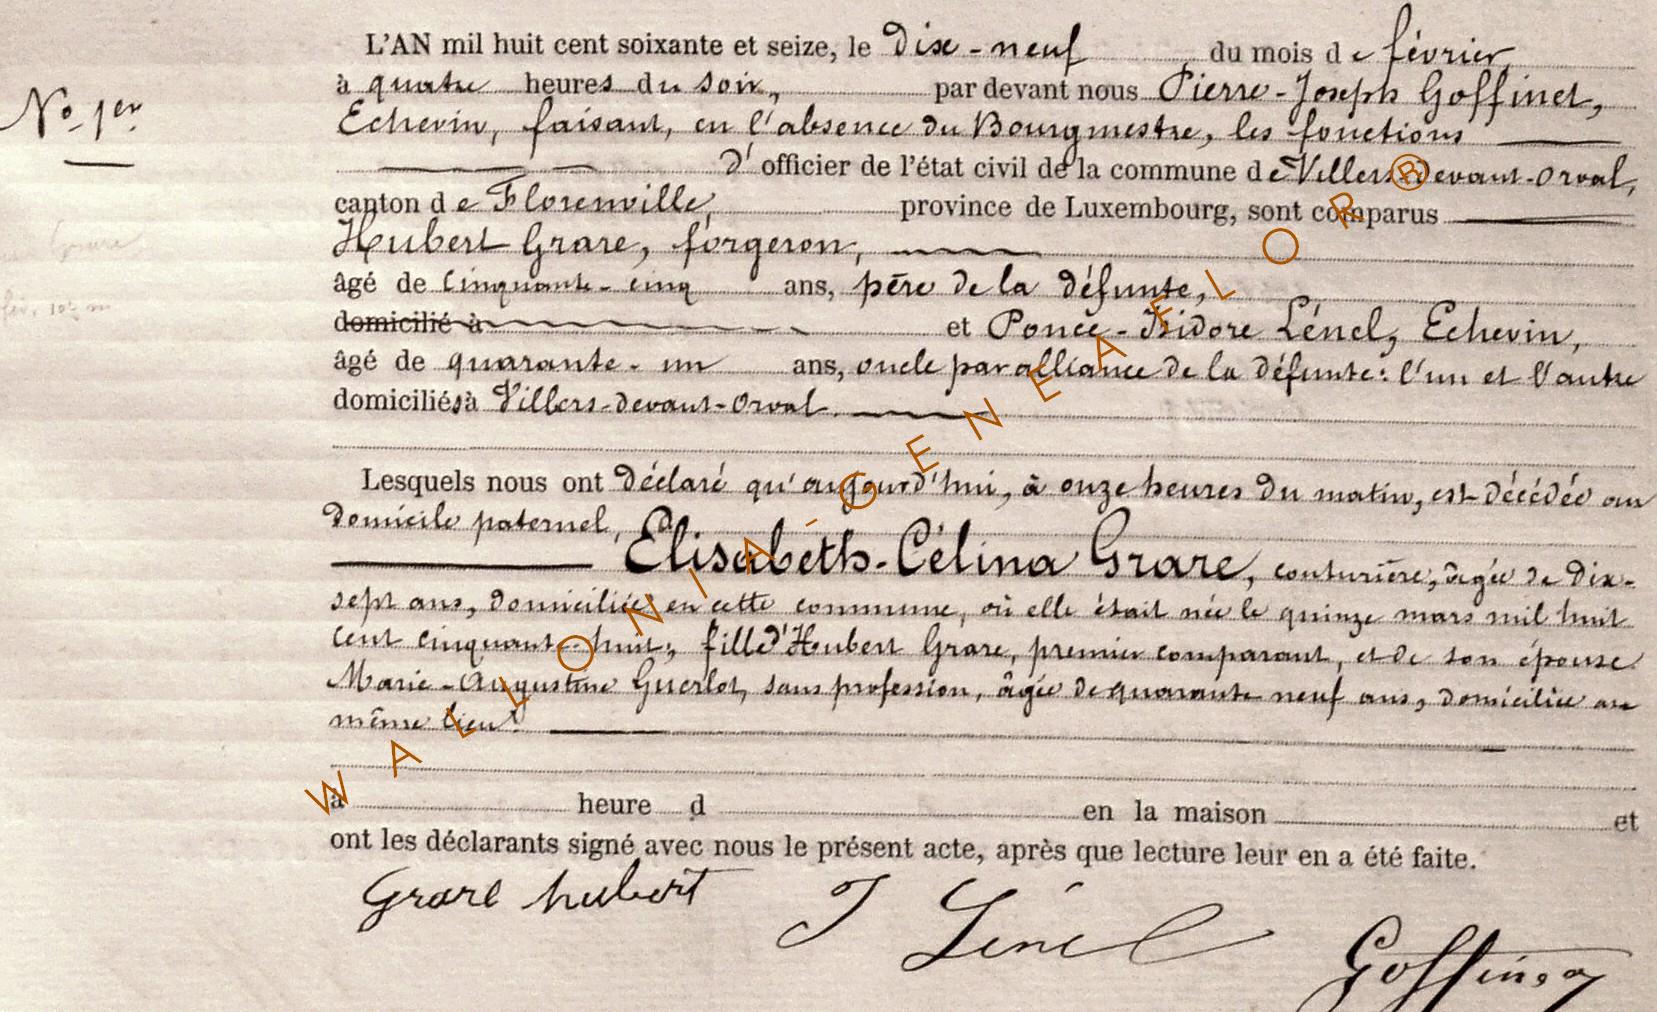 L'AN mil huit cent soixante et seize, le Dix-neuf du mois de février,
à quatre heures du soir, par devant nous Pierre-Joseph Goffinet,
No. 1er
Echevin, faisant, en l'absence du Bourgmestre, les fonctions
d'officier de l'état civil de la commune de Villers-devant-Orval,
canton de Florenville, province de Luxembourg, sont comparus
Hubert Grare, forgeron,
âgé de Cinquante-cinq ans, père de la défunte,
domicilié à et Ponce-Isidore Lénel, Echevin,
âgé de quarante-un ans, oncle par alliance de la défunte: l'un et l'autre
domiciliés à Villers-devant-Orval.
Lesquels nous ont déclaré qu'aujourd'hui, à onze heures du matin, est décédée au
domicile paternel,
Elisabeth-Célina Grare, couturière, âgée de dix-
sept ans, domiciliée en cette commune, où elle était née le quinze mars mil huit
cent cinquante-huit; fille d'Hubert Grare, premier comparant, et de son épouse
Marie-Augustine Guerlot, sans profession, âgée de quarante neuf ans, domiciliée au
même lieu.
à heure d en la maison et
ont les déclarants signé avec nous le présent acte, après que lecture leur en a été faite.
Grare hubert
J Lénel
Goffinet
WALLONIA-GENEAFLOR®